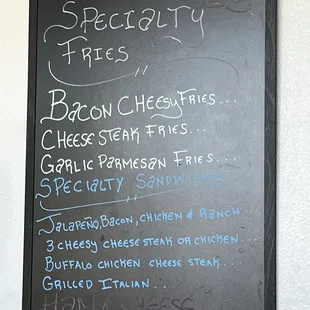 SPECIALTY
FRIES
BACON CHEESY FRIES...
CHEESE STEAK FRIES...
GARLIC PARMESAN FRIES...
SPECIALTY SANDWICHES
JALAPEÑO, BACON, CHICKEN & RANCH...
3 CHEESY CHEESE STEAK OR CHICKEN...
BUFFALO CHICKEN CHEESE STEAK...
GRILLED ITALIAN...
CHEESE